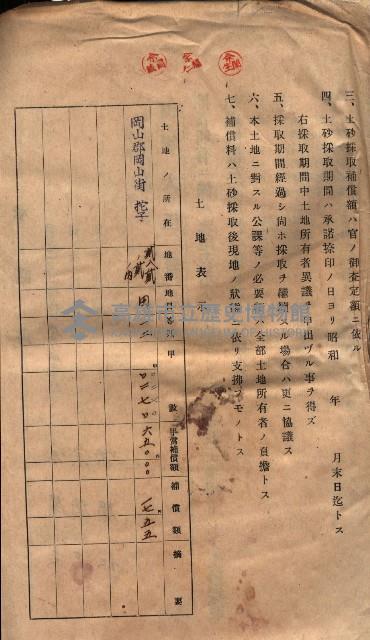 三、土砂採取補償額ハ官ノ御査定額ニ依ル
四、土砂採取期間ハ承諾捺印ノ日ヨリ昭和　年　月末日迄トス
右採取期間中土地所有者異議ヲ申出ヅル事ヲ得ズ
五、採取期間經過シ尚ホ採取ヲ繼續スル場合ハ更ニ協議ス
六、本土地ニ對スル公課等ノ必要ハ全部土地所有者ノ負擔トス
七、補償料ハ土砂採取後現地ノ狀 依リ支拂 モノトス
土地表示
土地ノ所在
地番
地目
甲
數
甲當補償額
補償額
摘要
岡山郡岡山街
內
田
六五〇〇〇
一七五五
高雄市立歷史博物館